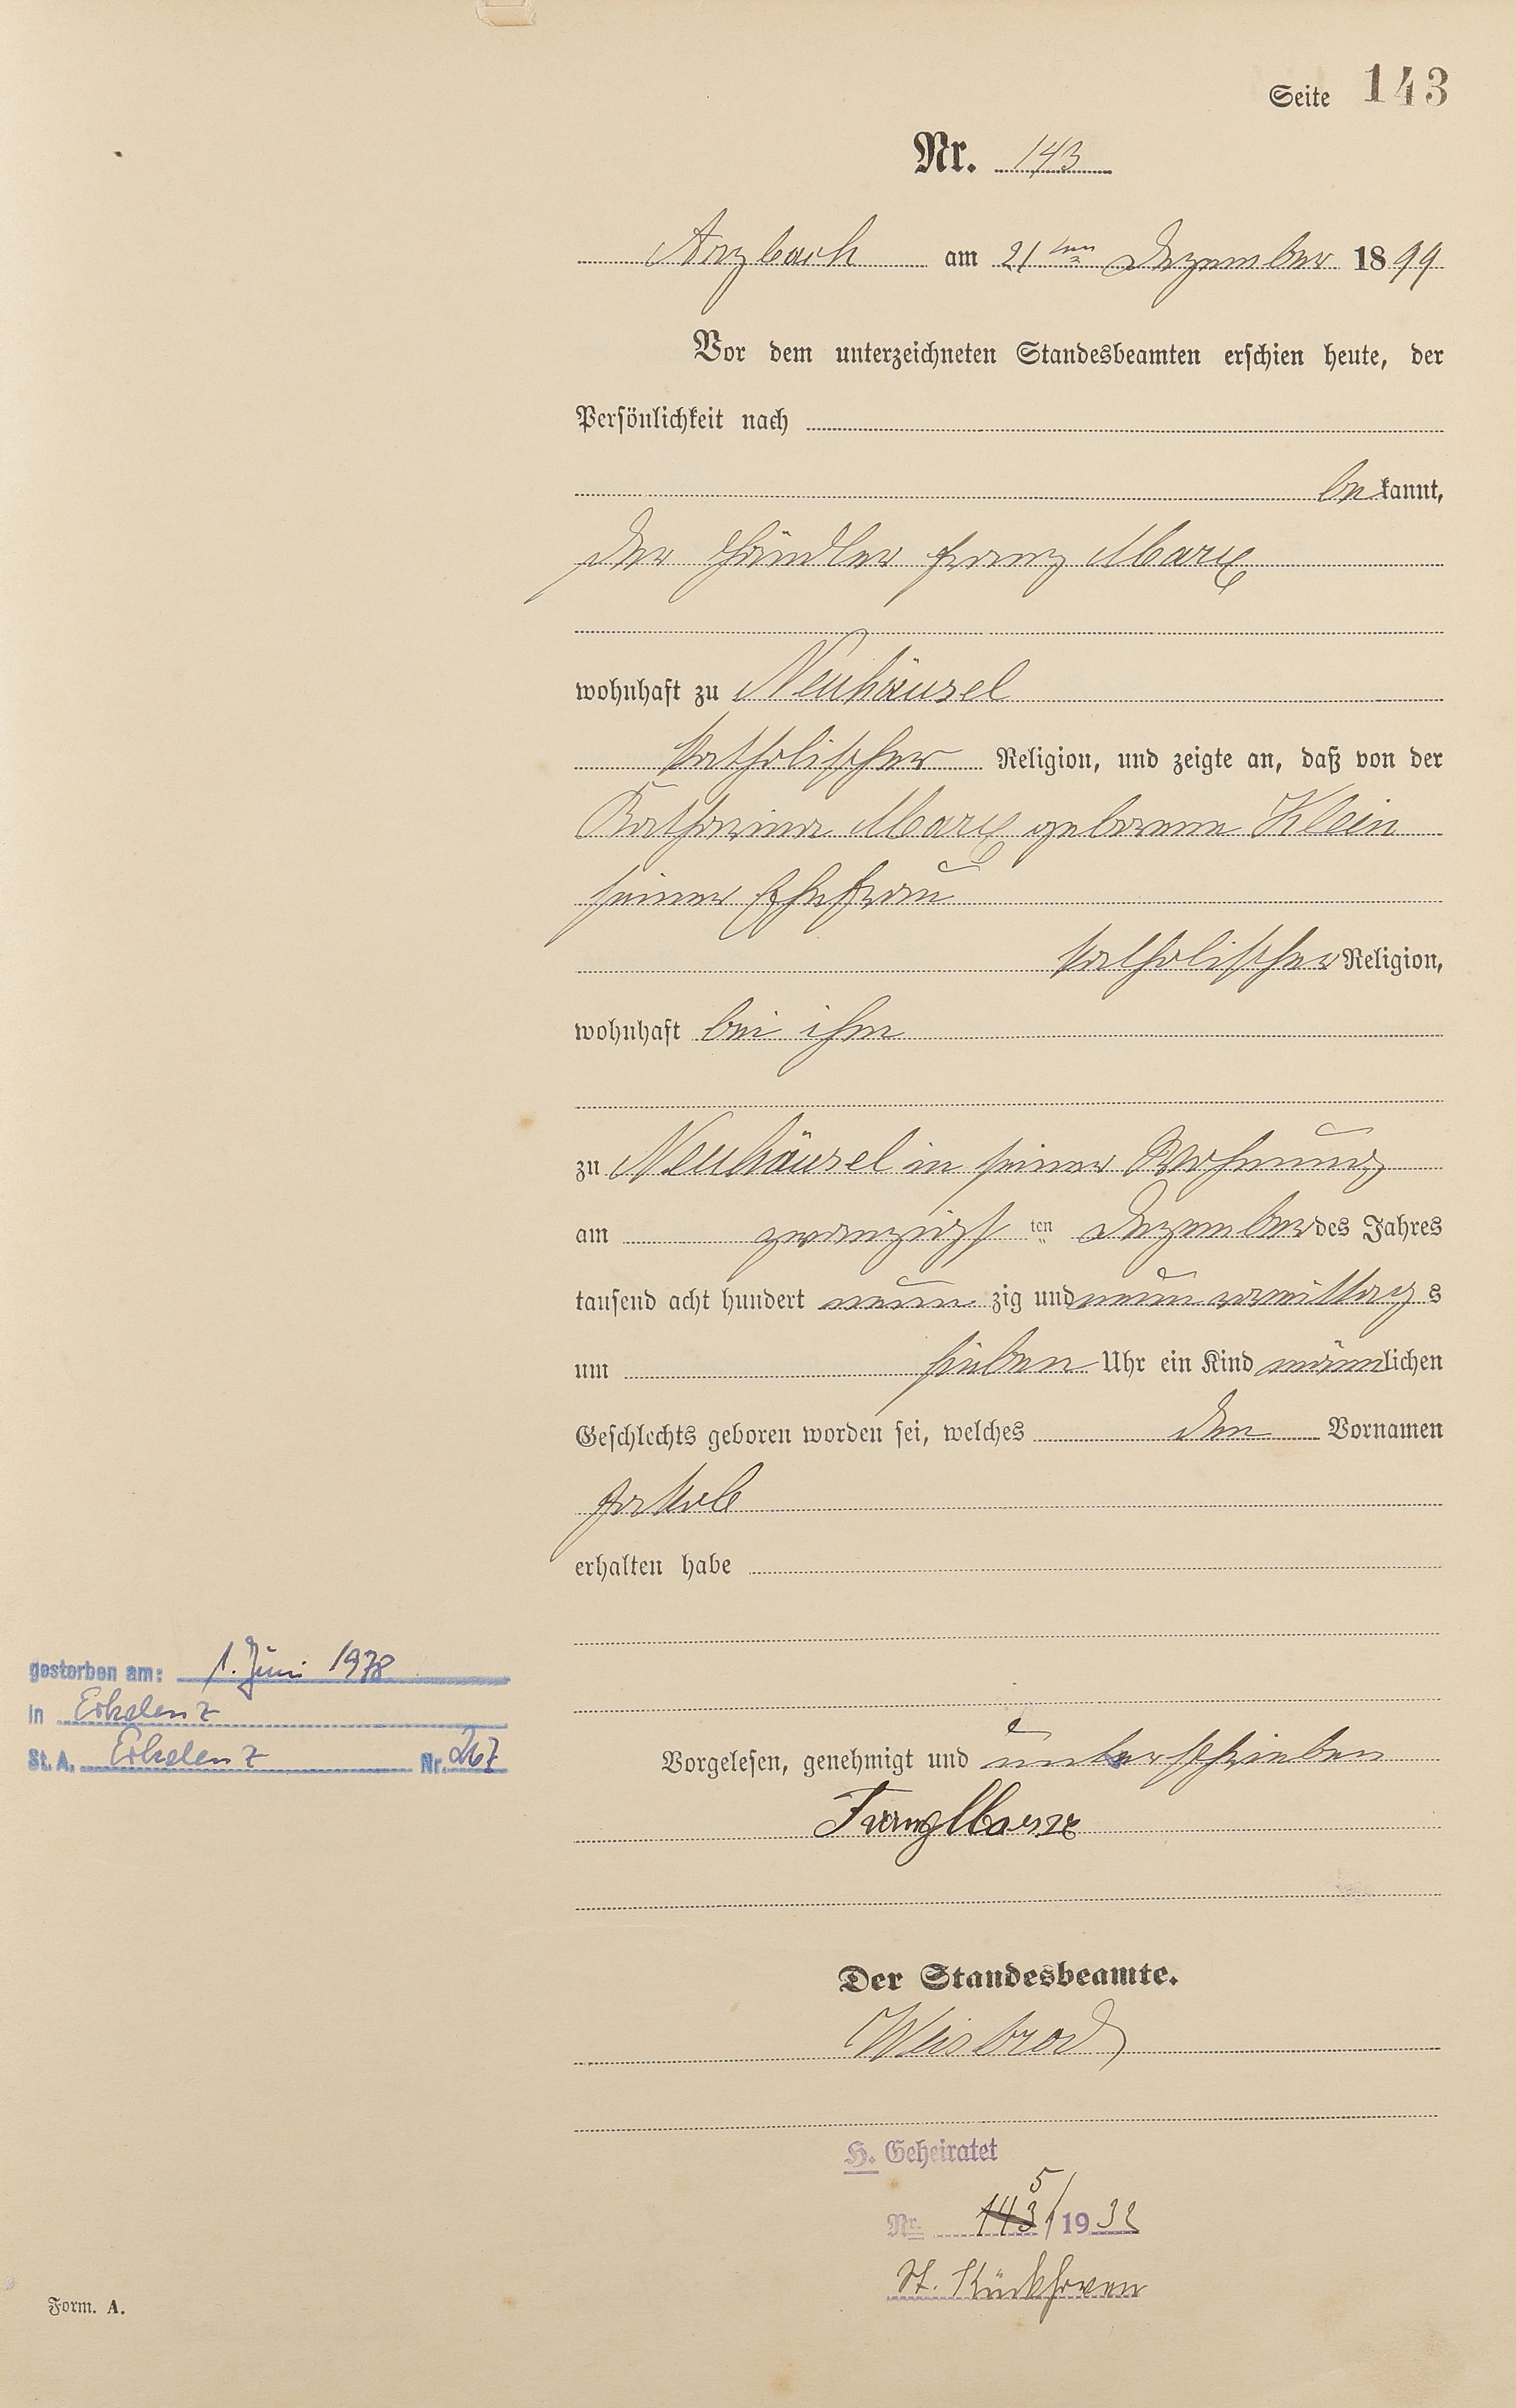 Seite 143
Nr. 143
Arzbach am 21ten Dezember 1899
Vor dem unterzeichneten Standesbeamten erschien heute, der
Persönlichkeit nach
bekannt,
der Händler Franz Marx
wohnhaft zu Neuhäusel
katholischer Religion, und zeigte an, daß von der
Katharina Marx geborene Klein
seiner Ehefrau
katholischer Religion,
wohnhaft bei ihm
zu Neuhäusel in seiner Wohnung
am zwanzigsten Dezember des Jahres
tausend acht hundert neunzig und neun vormittags
um sieben Uhr ein Kind männlichen
Geschlechts geboren worden sei, welches den Vornamen
Jakob
erhalten habe
gestorben am: 1. Juni 1978
in Erkelenz
St. A. Erkelenz Nr. 267
Vorgelesen, genehmigt und unterschrieben
Franz Marx
Der Standesbeamte.
Weisbrod
H. Geheiratet
Nr. 143 5/1932
St. Kückhoven
Form. A.